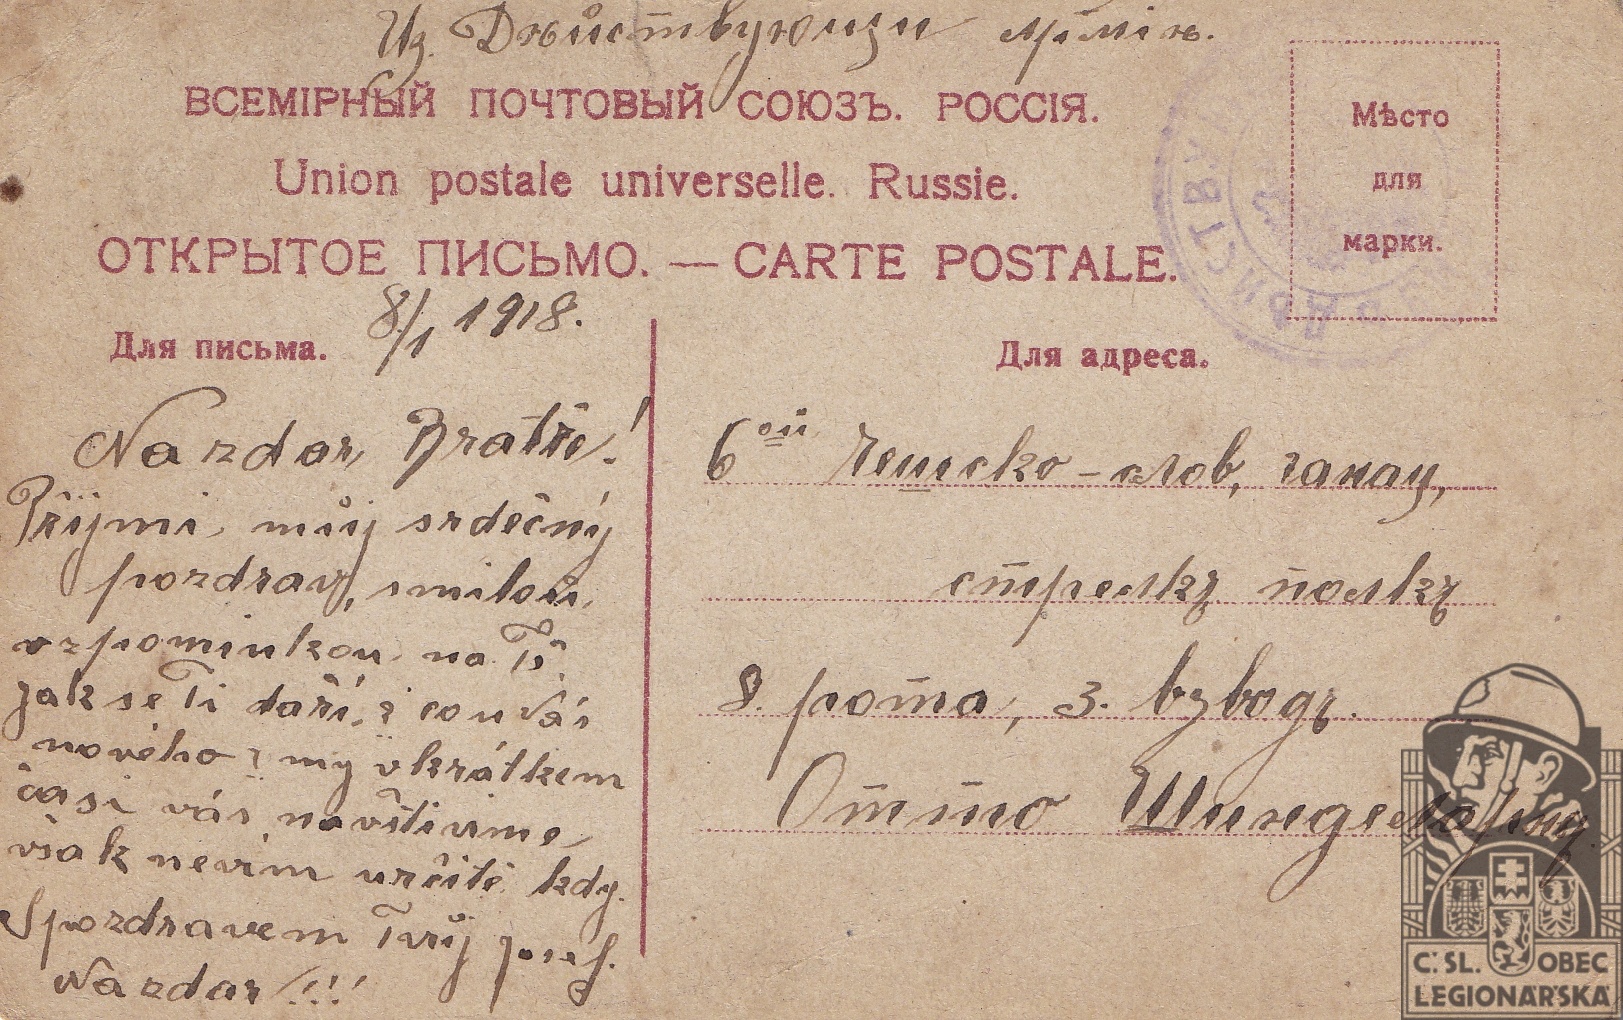 Из Дѣйствующи арміи.
ВСЕМІРНЫЙ ПОЧТОВЫЙ СОЮЗЪ. РОССІЯ.
Union postale universelle. Russie.
ОТКРЫТОЕ ПИСЬМО. — CARTE POSTALE.
Мѣсто
для
марки.
Для письма.
8/1 1918.
Nazdar, Bratře!
Přijmi, můj srdečný
pozdrav, smilou
vzpomínkou na Tě
jak se Ti daří, ? co u Vás
nového? my vkrátkem
časi vás navštívíme,
však nevím určitě kdy.
Spozdravem Tvůj
Nazdar!!!
Для адреса.
6ой Чешско-слов,
стрелкъ полкъ
8. рота, 3. взводъ.
Отто
Č. SL. OBEC
LEGIONÁŘSKÁ